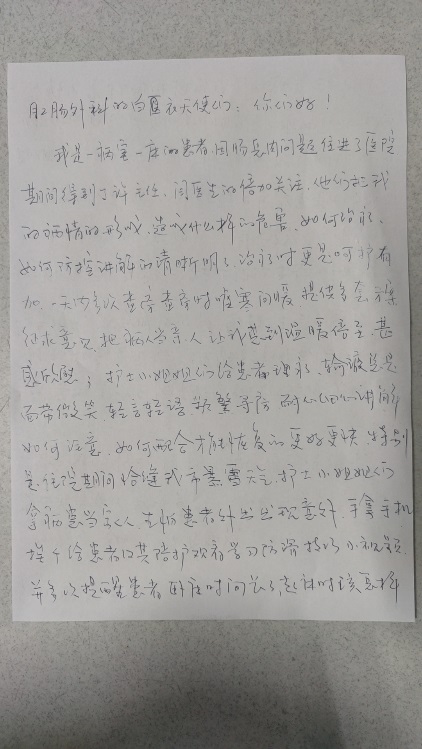 肛肠外科的白医衣天使们：你们好！
我是一病室一床的患者,因肠息肉问题住进了医院
期间得到了许主任、闫医生的倍加关注,他们把我
的病情的形成,造成什么样的危害,如何治疗,
如何防控讲解的清晰明了,治疗时更是呵护有
加,一天内多次查房查房时嘘寒问暖
征求意见,把病人当亲人让我感到温暖倍至,甚
感欣慰；护士小姐姐们给患者理疗、输液总是
面带微笑轻言轻语 耐心细心讲解
如何注意、如何配合才能恢复的更好更快,特别
是住院期间恰逢我市暴雪天气,护士小姐姐们
拿病患当家人,生怕患者外出出现意外,手拿手机
挨个给患者及其陪护观看学习防滑 小视频
并多次提醒患者卧床时间长了,起床时该怎样